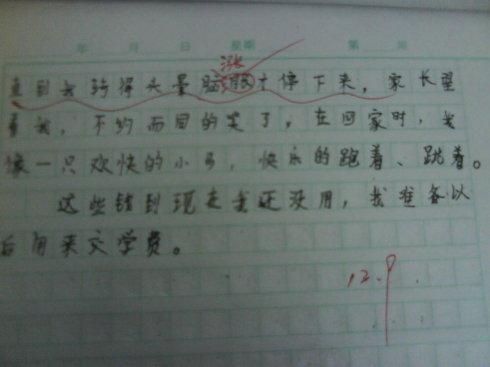 年 月 日 星期 第 周
涨
直到我转得头晕脑才停下来，家长望
着我，不约而同的笑了，在回家时，我
像一只欢快的小，快乐的跑着、跳着。
这些钱到现在我还没用，我准备以
后用来交学费。
12.9